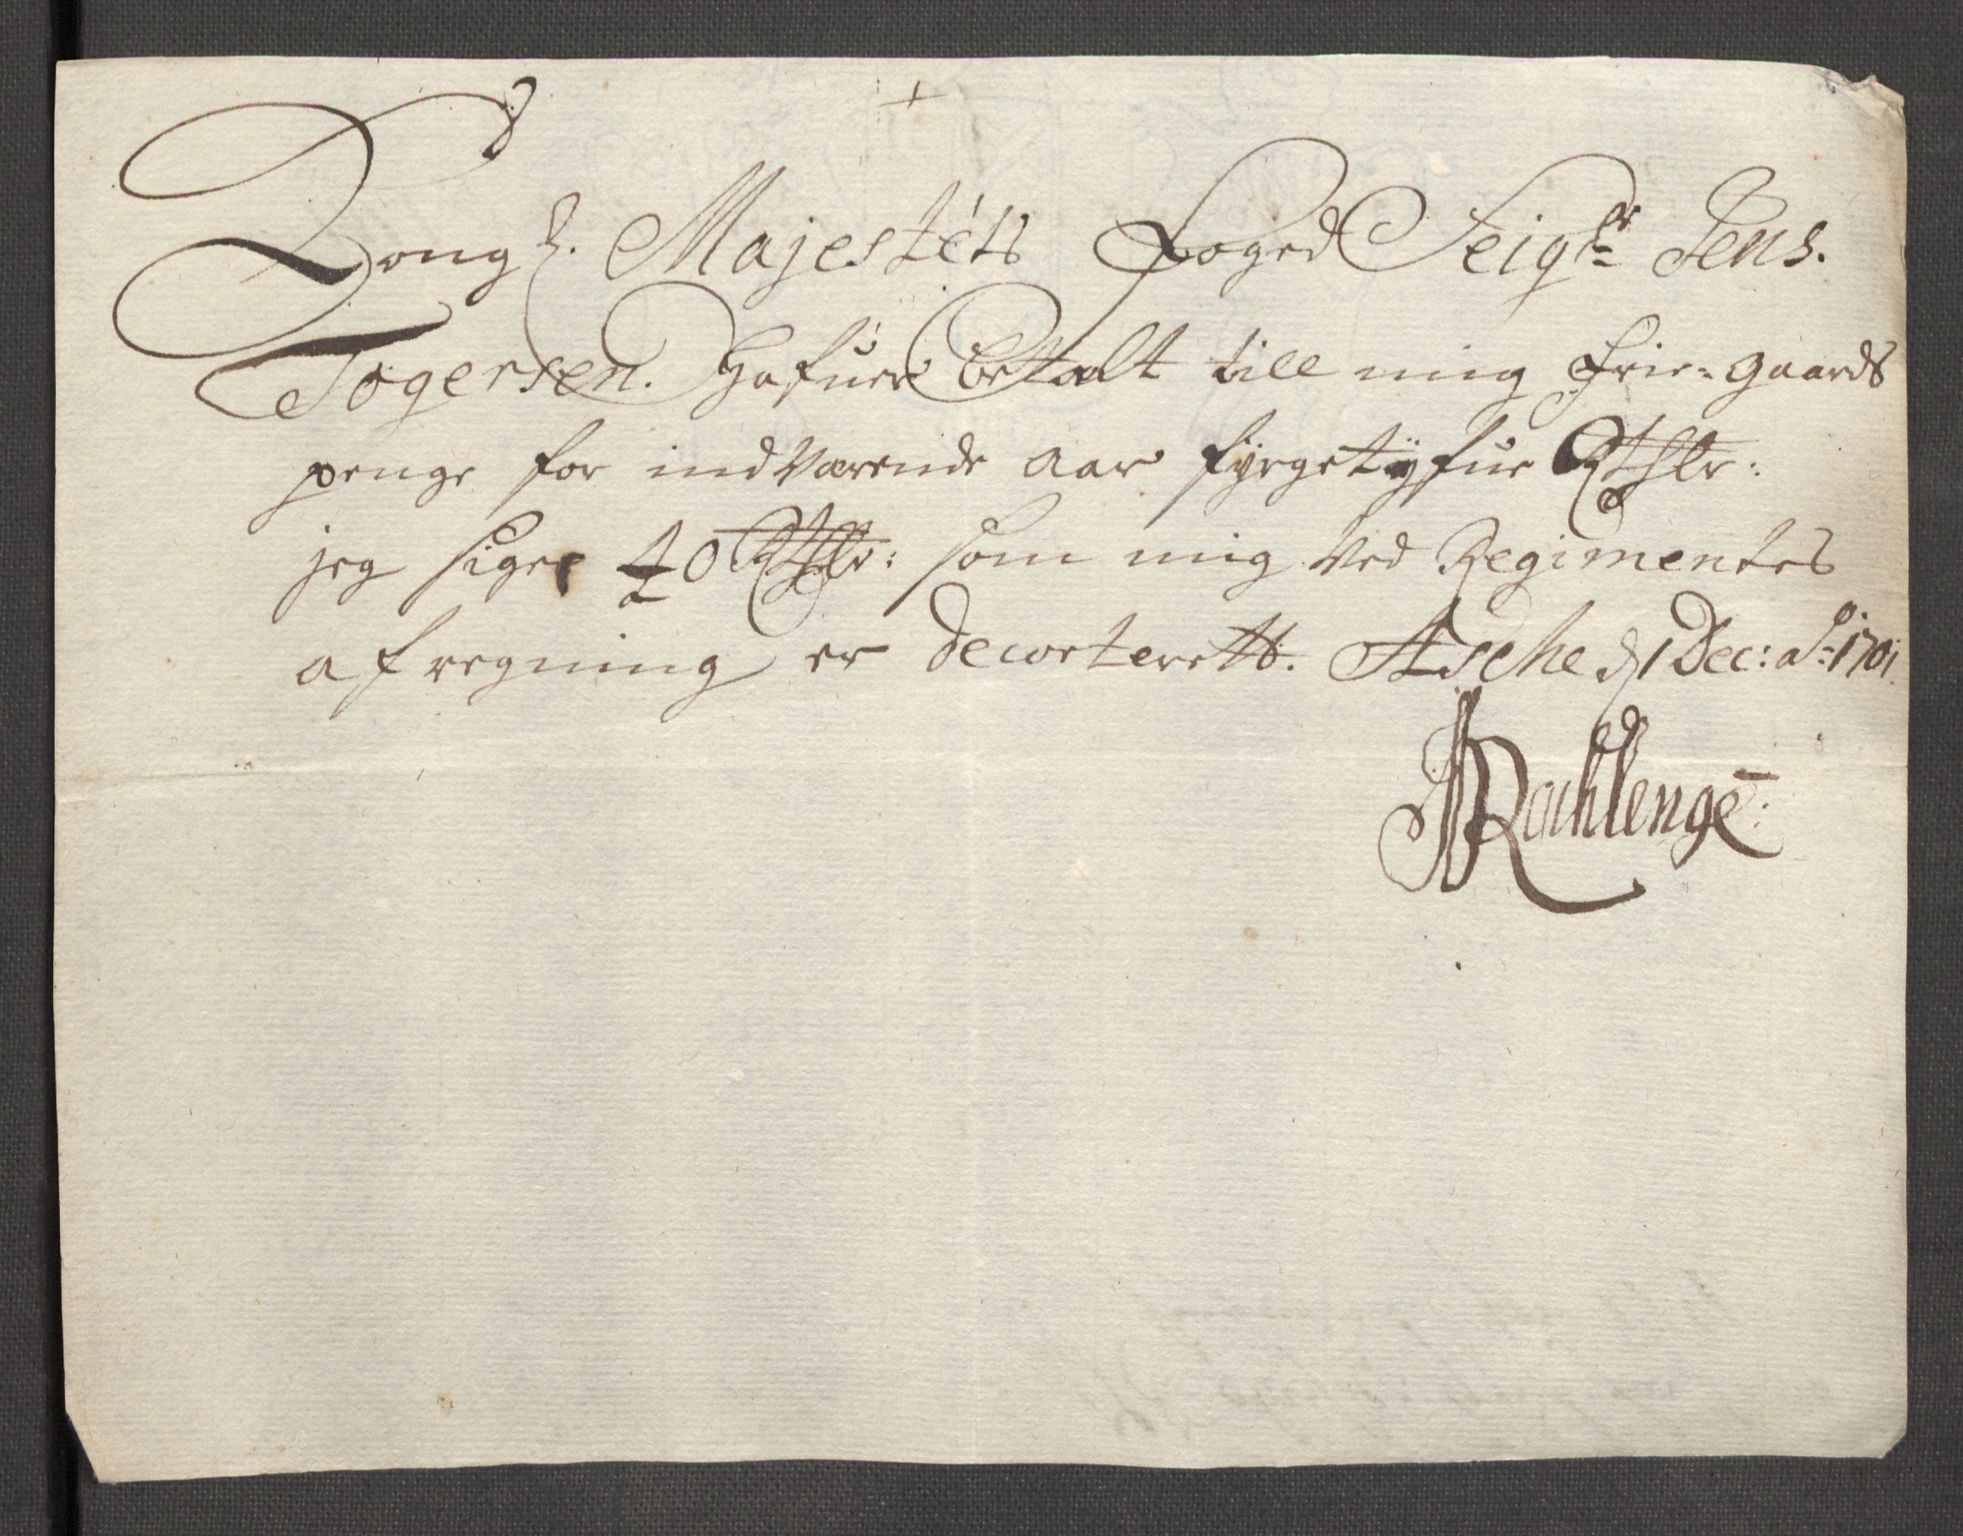 Kongl. Majestéts Foged Seigr Jens.
Togersen. Hafuer betalt till mig frie=gaards
penge for indVærende aar fyrgetÿfue Rthlr:
jeg siger 40 Rthlr: som mig Ved Regimentes
afregning er decorterett. Asche d 1 Dec: ao 1701.